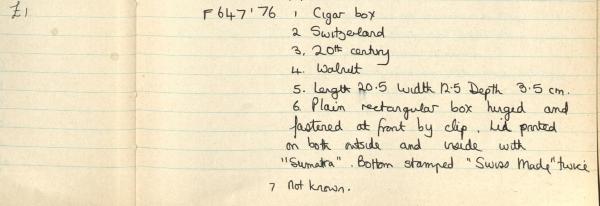 £1 F647'76 1 Cigar box
2 Switzerland
3. 20th century
4. Walnut
5. Length 20.5 Width 12.5 Depth 3.5 cm.
6. Plain rectangular box hinged and
fastened at front by clip. Lid printed
on both outside and inside with
"Sumatra". Bottom stamped "Swiss Made" twice
7 Not known.